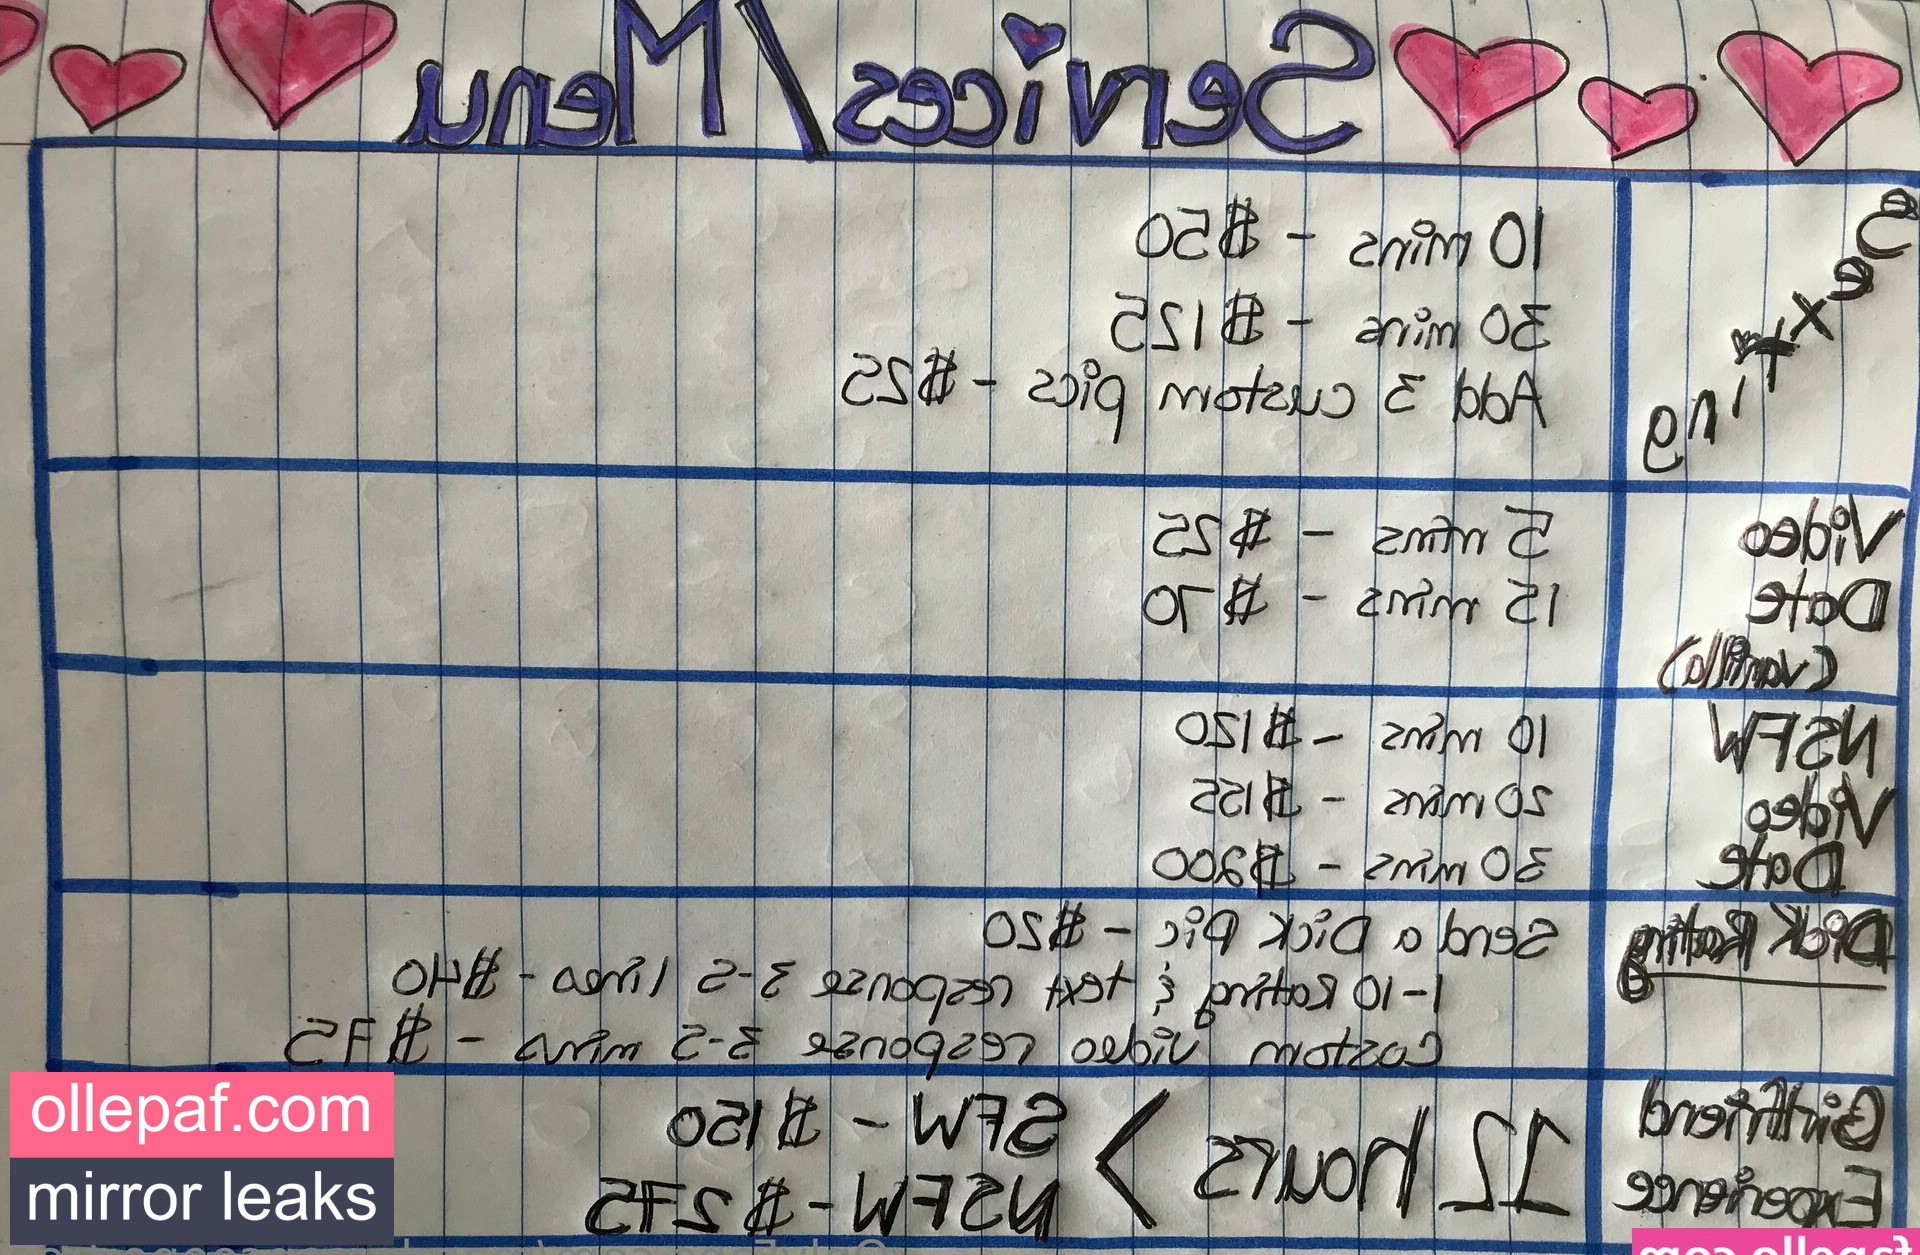 Services/Menu
Sexting
10 mins - $50
30 mins - $125
Add 3 custom pics - $25
Video
Date
(vanilla)
5 mins - $25
15 mins - $70
NSFW
Video
Date
10 mins - $120
20 mins - $155
30 mins - $200
Dick Rating
Send a Dick Pic - $20
1-10 Rating & text response 3-5 lines - $40
Custom video response 3-5 mins - $75
Girlfriend
Experience
12 hours >
SFW - $150
NSFW - $275
ollepaf.com
mirror leaks